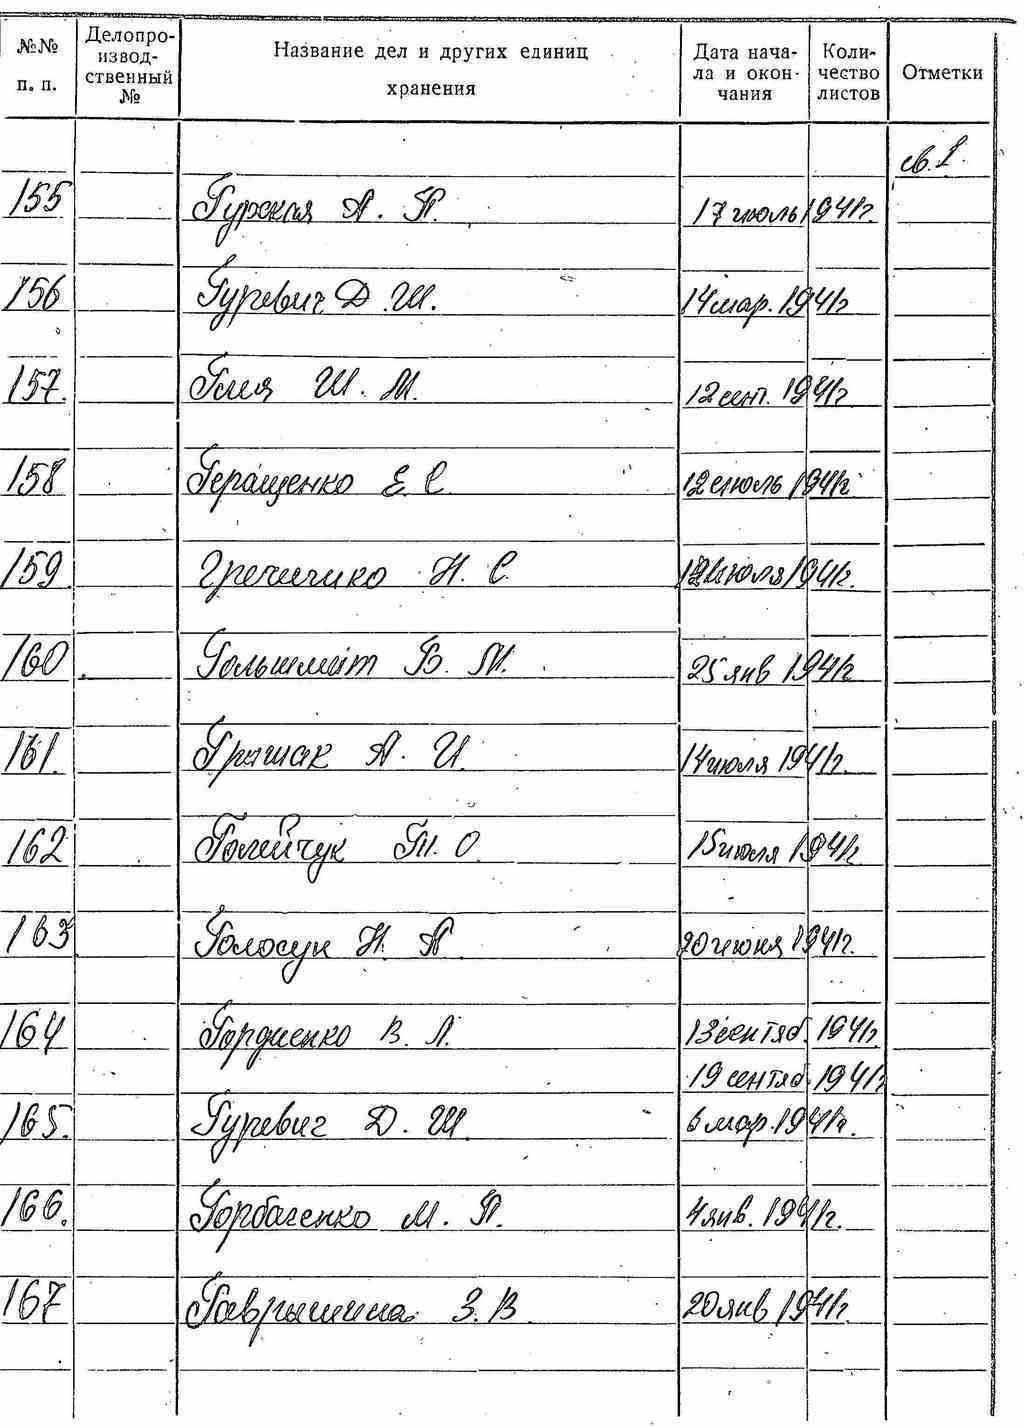 №№ п. п. Делопроизводственный № Название дел и других единиц хранения Дата начала и окончания Количество листов Отметки
св. 1
155 Гурская А. П. 17 июль 1941г.
156 Гуревич Д. Ш. 14 мар. 1941г
157. Ш. М. 12 сент. 1941г
158 Геращенко Е. С. 12 июль 1941г
159. Гречичко Н. С. июля 1941г.
160 Гольшмат Б. М. 25 янв 1941г
161. Грашак А. И. 14 июля 1941г.
162 Голейчук Т. О. 15 июля 1941г
163 Голосун Н. А 20 июня 1941г.
164 Гордиенко В. Л. 13 сентяб. 1941г.
19 сентяб. 1941г
165. Гуревич Д. Ш. 6 мар. 1941г.
166. Горбаченко М. П. 4 янв. 1941г.
167 Гаврышина З. В. 20 янв 1941г.